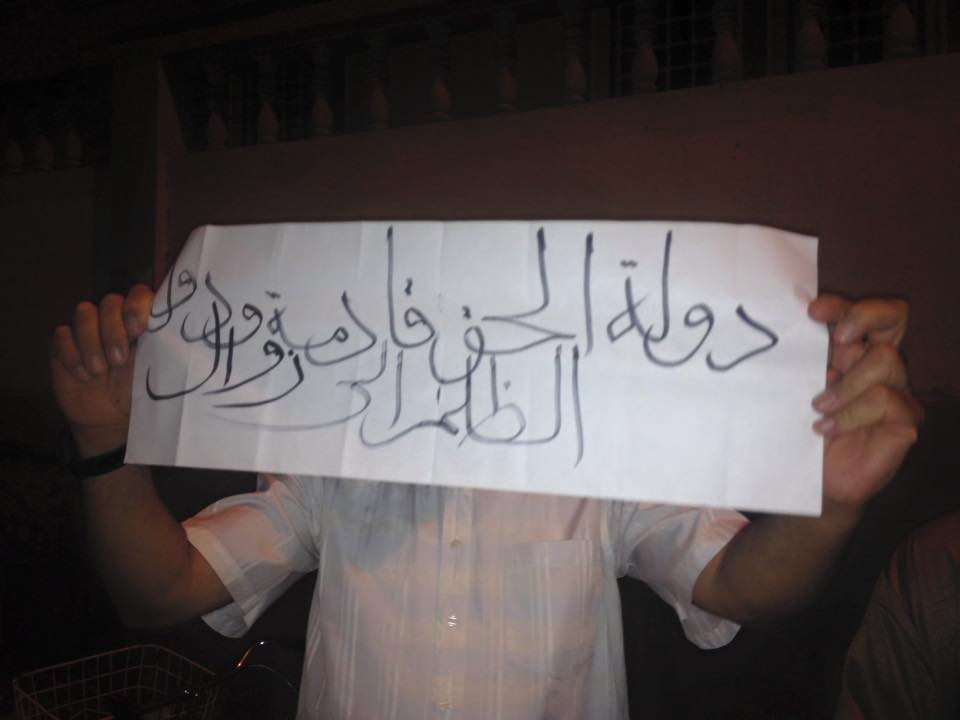 دولة الحق قادمة
الظلم الى زوال